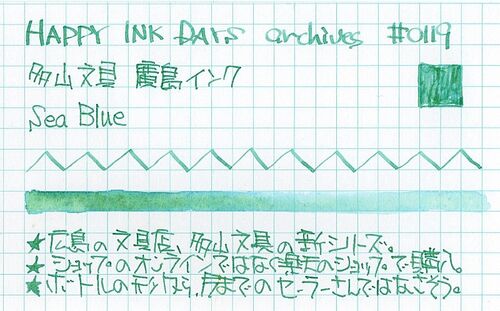 HAPPY INK DAYS archives #0119
多山文具 霞島インク
Sea Blue
★広島の文具店、多山文具の新シリーズ。
★ショップのオンラインではなく楽天のショップで購入。
★ボトルの形から、今までのセーラーさんではなさそう。